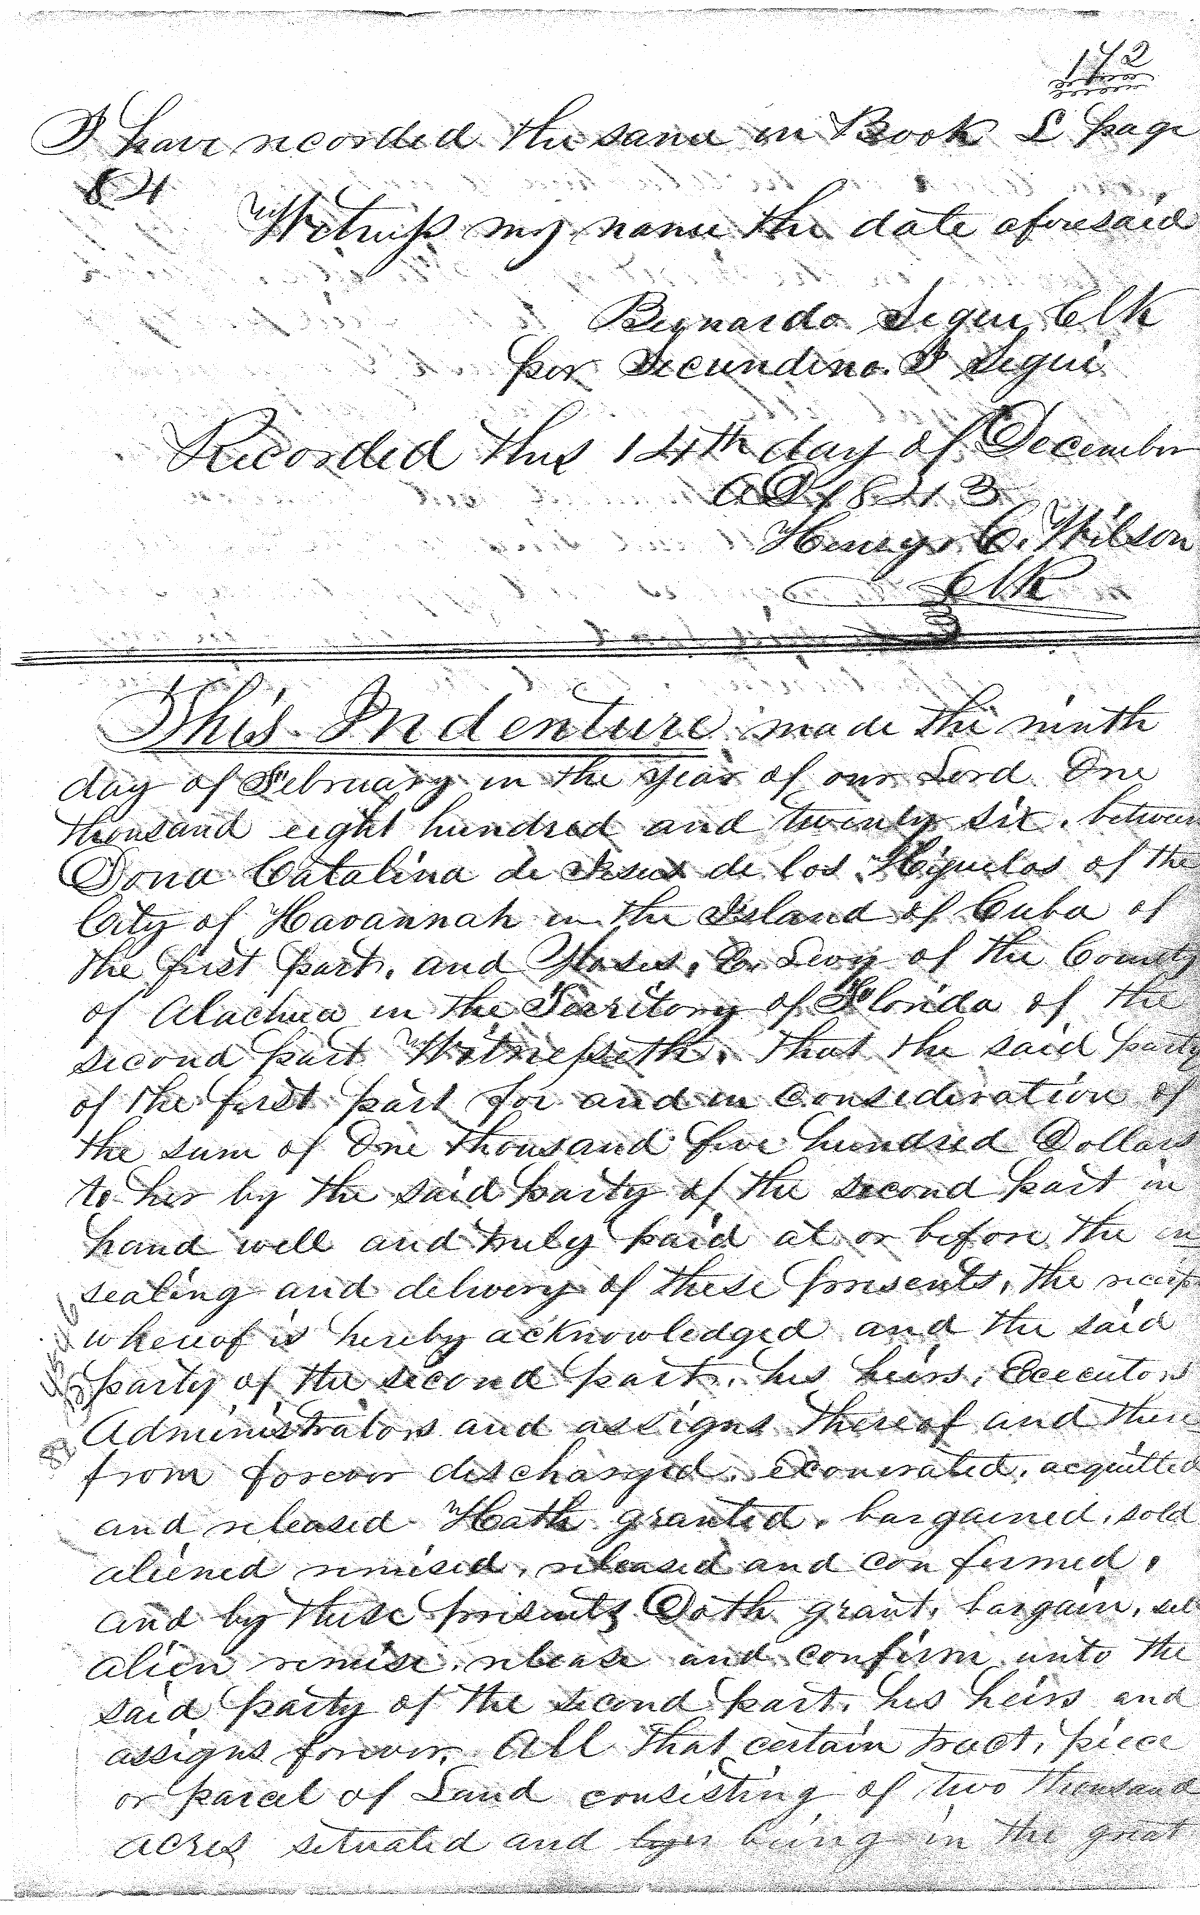 172
I have recorded the same in Book L page
84
Witness my name the date aforesaid
Bernardo Segui Clk
per Secundino. F Segui
Recorded this 14th day of December
AD 1843
Henry. C. Wilson
Clk
This Indenture made the ninth
day of February in the year of our Lord One
thousand eight hundred and twenty six. between
Dona Catalina de Jesus de los Hijuelos of the
City of Havannah in the Island of Cuba of
the first part, and Moses. E. Levy of the County
of Alachua in the Territory of Florida of the
second part Witnesseth. That the said party
of the first part for and in consideration of
the sum of One thousand five hundred Dollars
to her by the said party of the second part in
hand well and truly paid at or before the en
sealing and delivery of these presents, the receipt
whereof is hereby acknowledged and the said
party of the second part. his heirs, Executors
Administrators and assigns thereof and there
from forever discharged. exonerated, acquitted
and released Hath granted, bargained, sold
aliened remised, released and confirmed,
and by these presents Doth grant, bargain, sell
alien remise. release and confirm unto the
said party of the second part. his heirs and
assigns forever. All that certain tract, piece
or parcel of Land consisting of two thousand
acres situated and being in the great